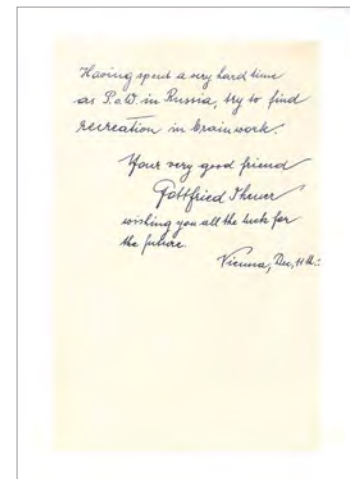 Having spent a very hard time
as P.o.W. in Russia, try to find
recreation in brainwork.
Your very good friend
Gottfried Theuer
wishing you all the luck for
the future.
Vienna, Dec, 11th.: